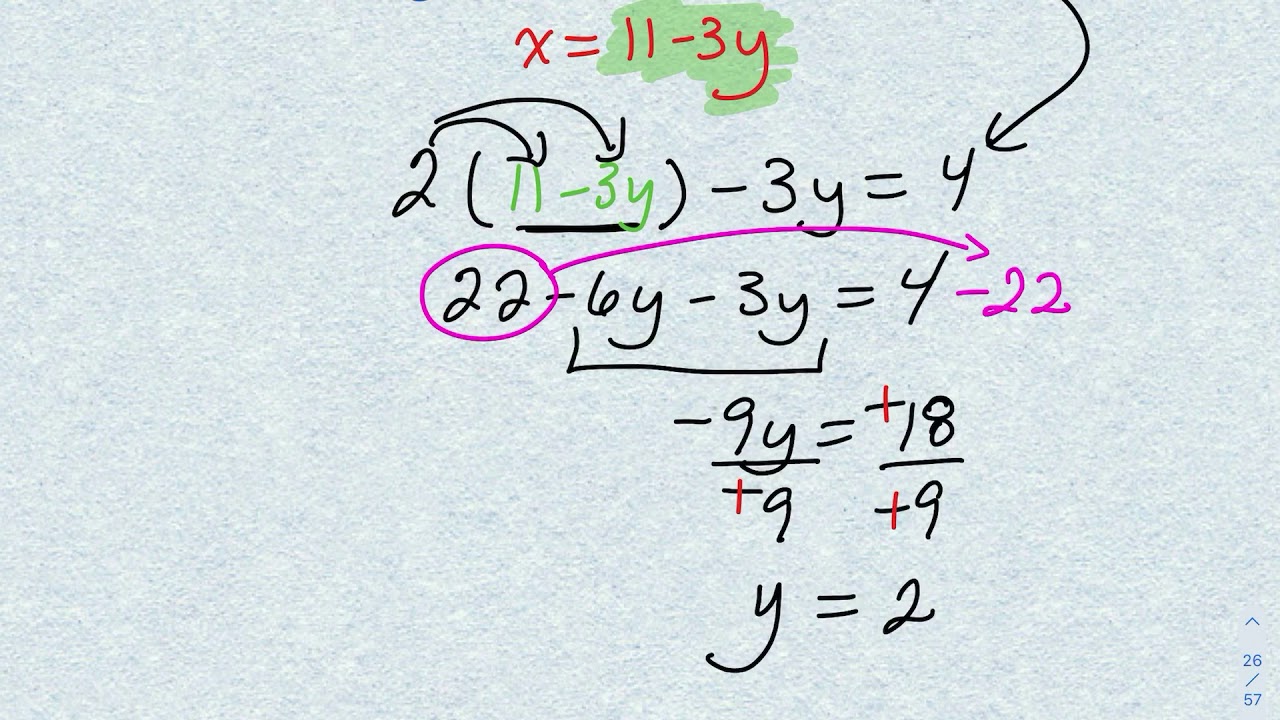 x = 11 - 3y
2 ( 11 - 3y ) - 3y = 4
22 - 6y - 3y = 4 - 22
-9y = +18
+9 +9
y = 2
26
/
57